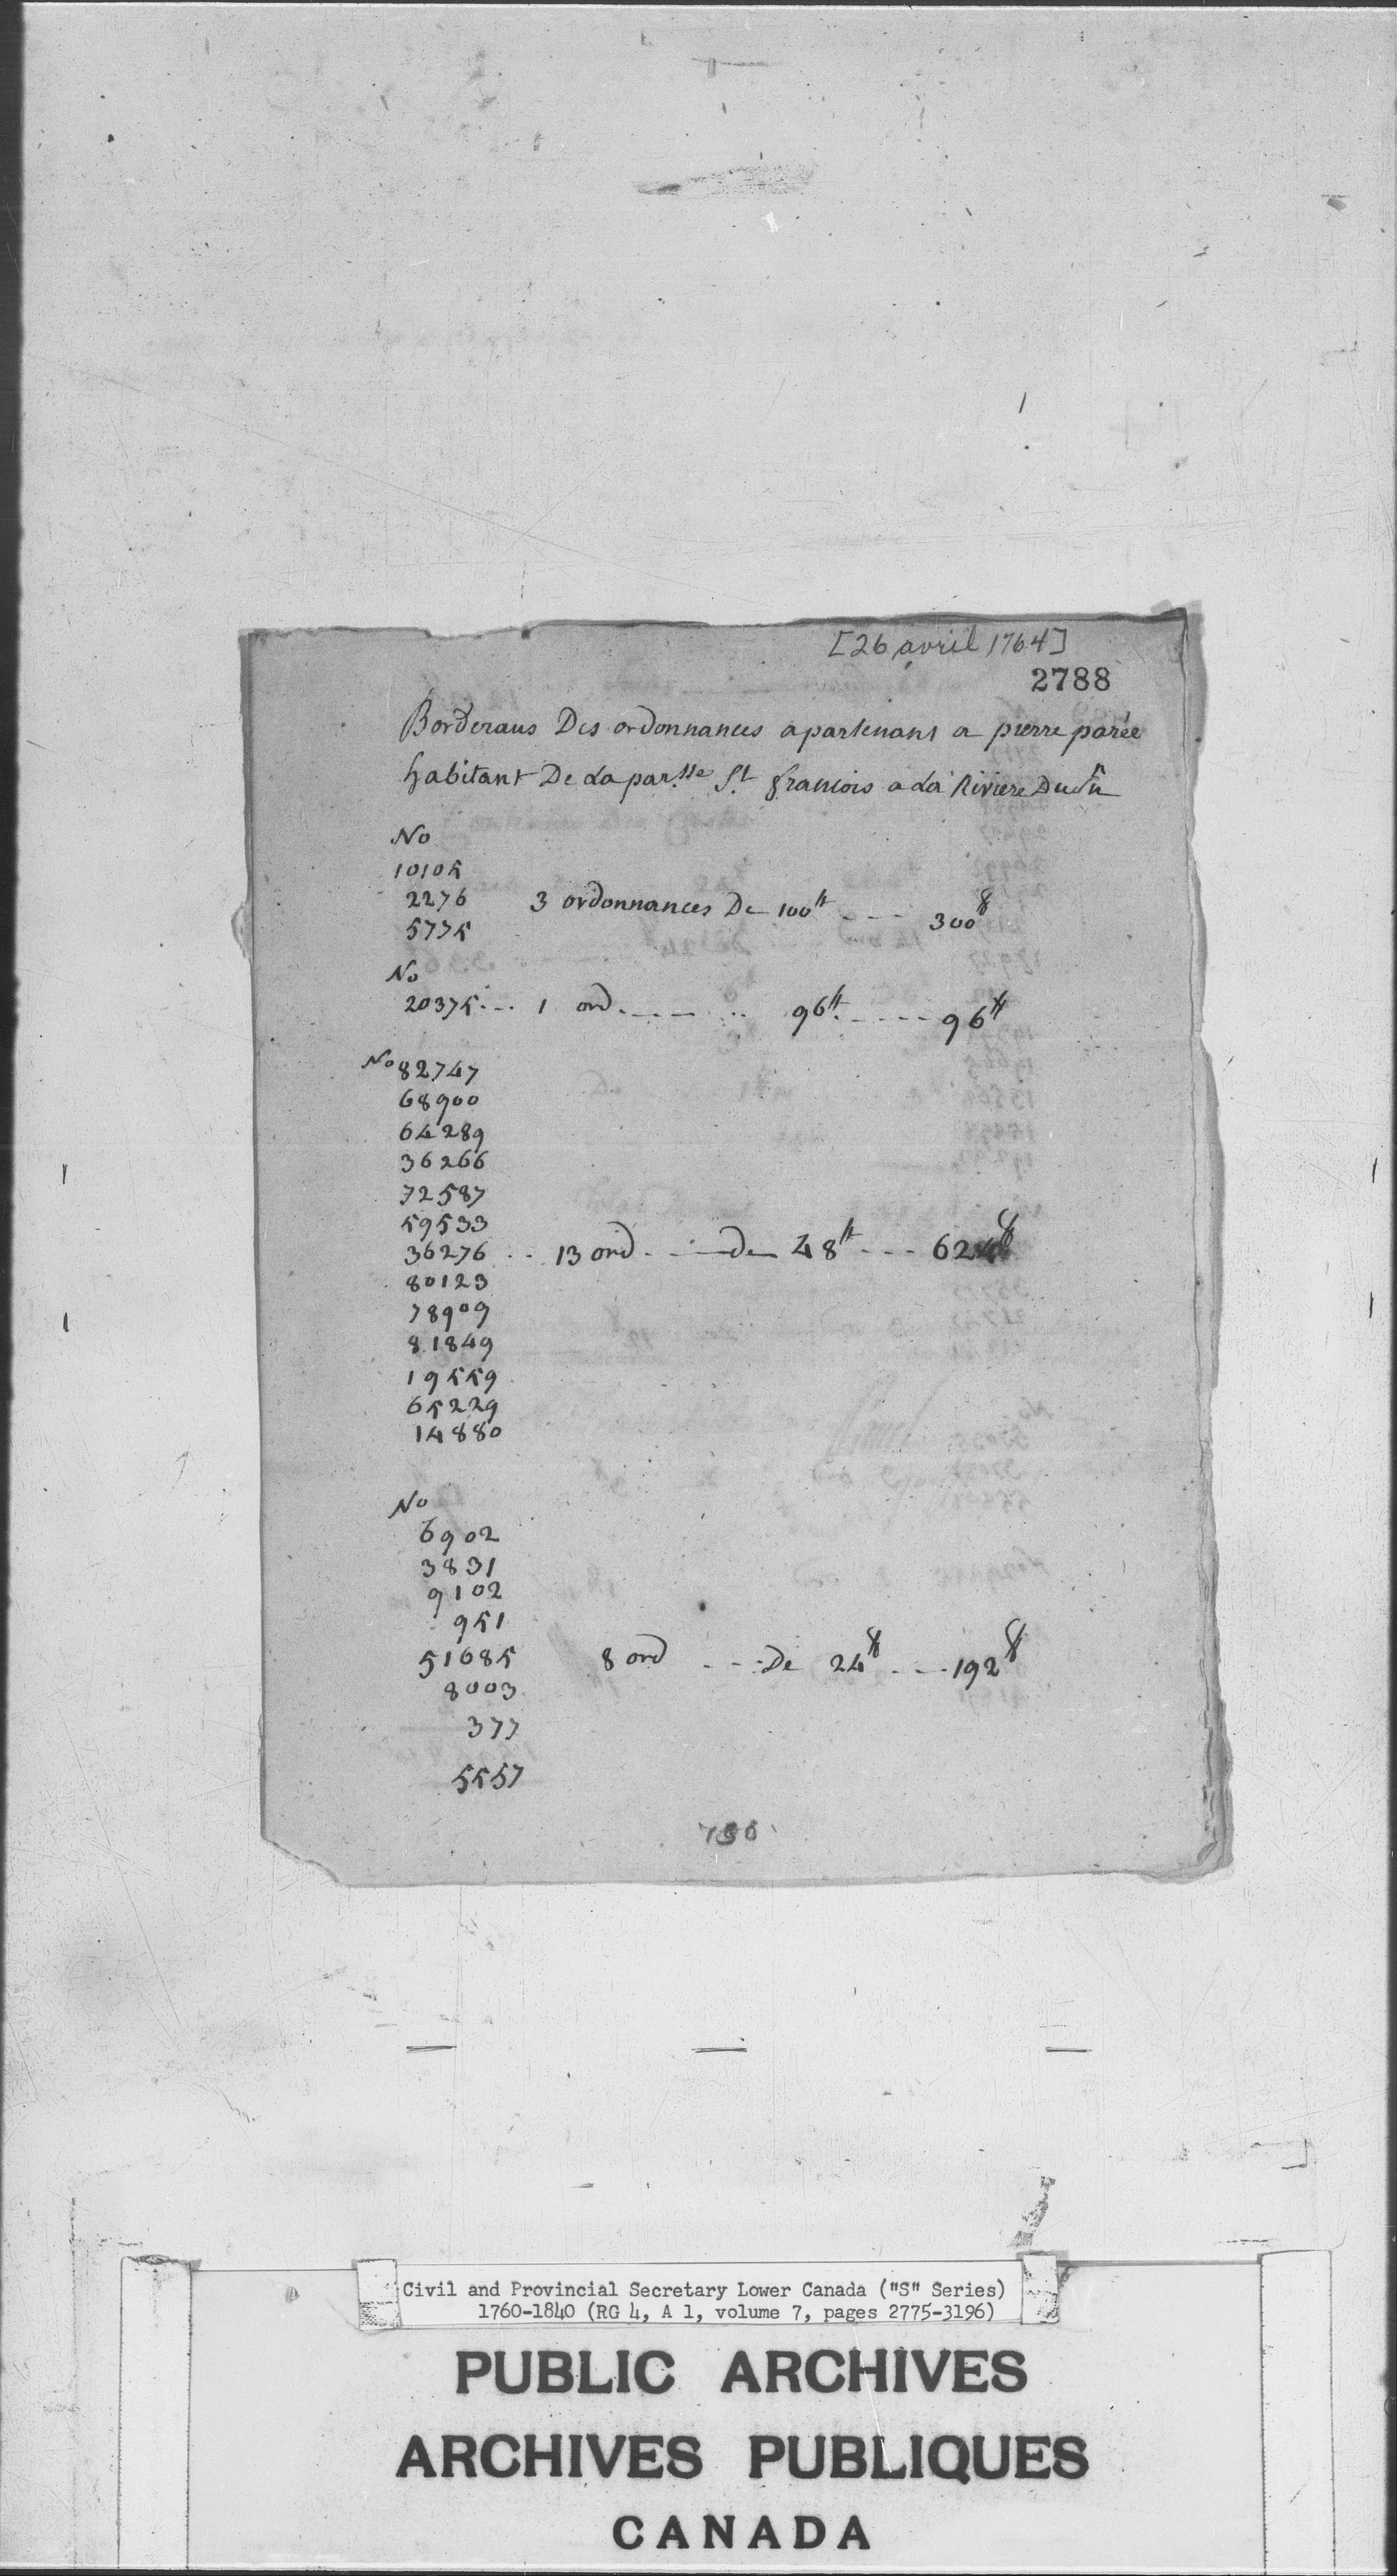 [26 avril 1764]
2788
Borderaus Des ordonnances apartenant a pierre parée
habitant De La par.sse St francois a La Riviere Du
No
10105
2276 3 ordonnances De 100tt ---- 300tt
5775
No
20375... 1 ord. ---- 96tt. ---- 96tt
No 82747
68900
64289
36266
72587
59533
36276 .. 13 ord. --- De 48tt --- 624tt
80123
78909
81849
19559
65229
14880
No
6902
3831
9102
951
51685 8 ord --- De 24tt --- 192tt
8003
377
5557
Civil and Provincial Secretary Lower Canada ("S" Series)
1760-1840 (RG 4, A 1, volume 7, pages 2775-3196)
PUBLIC ARCHIVES
ARCHIVES PUBLIQUES
CANADA